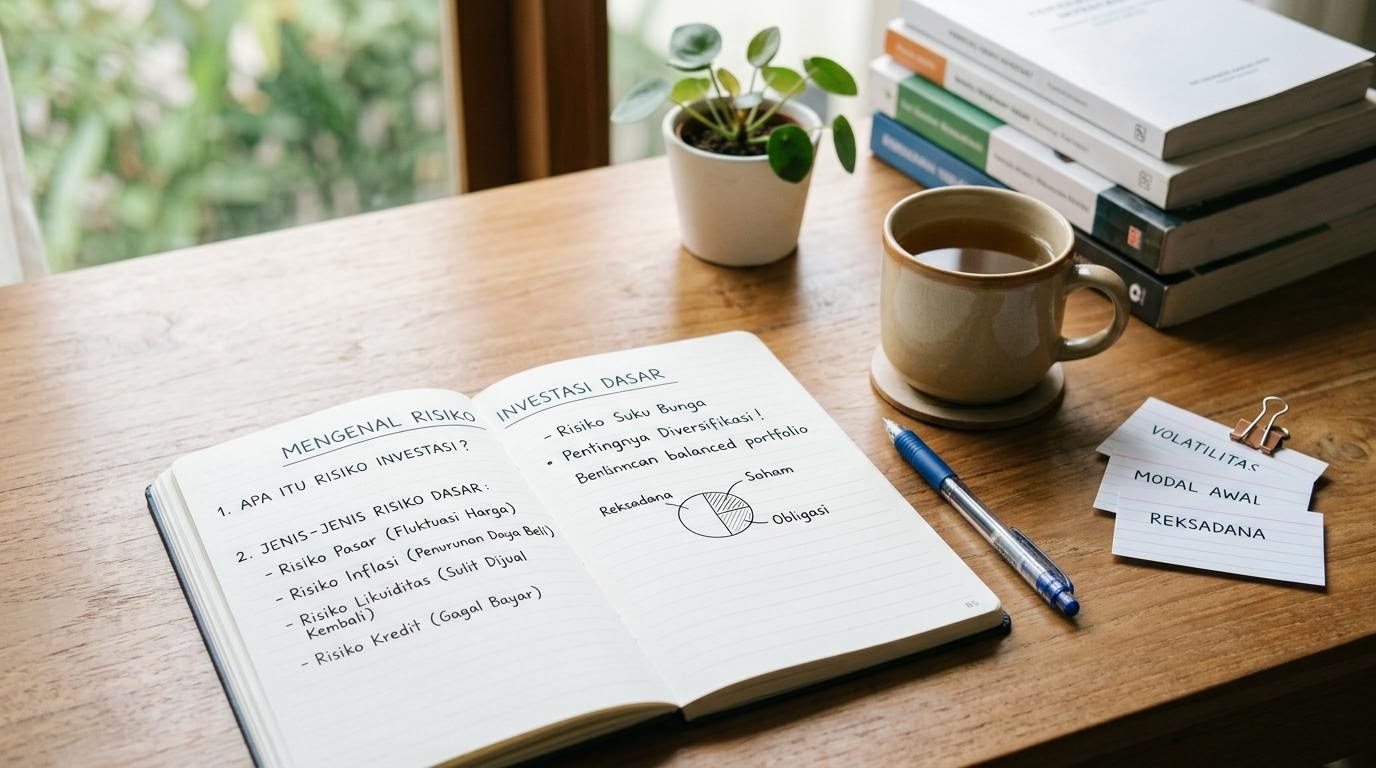 MENGENAL RISIKO
1. APA ITU RISIKO INVESTASI?
2. JENIS-JENIS RISIKO DASAR:
- Risiko Pasar (Fluktuasi Harga)
- Risiko Inflasi (Penurunan Daya Beli)
- Risiko Likuiditas (Sulit Dijual
Kembali)
- Risiko Kredit (Gagal Bayar)
INVESTASI DASAR
- Risiko Suku Bunga
• Pentingnya Diversifikasi!
balanced portfolio
Reksadana
Soham
Obligasi
VOLATILITAS
MODAL AWAL
REKSADANA